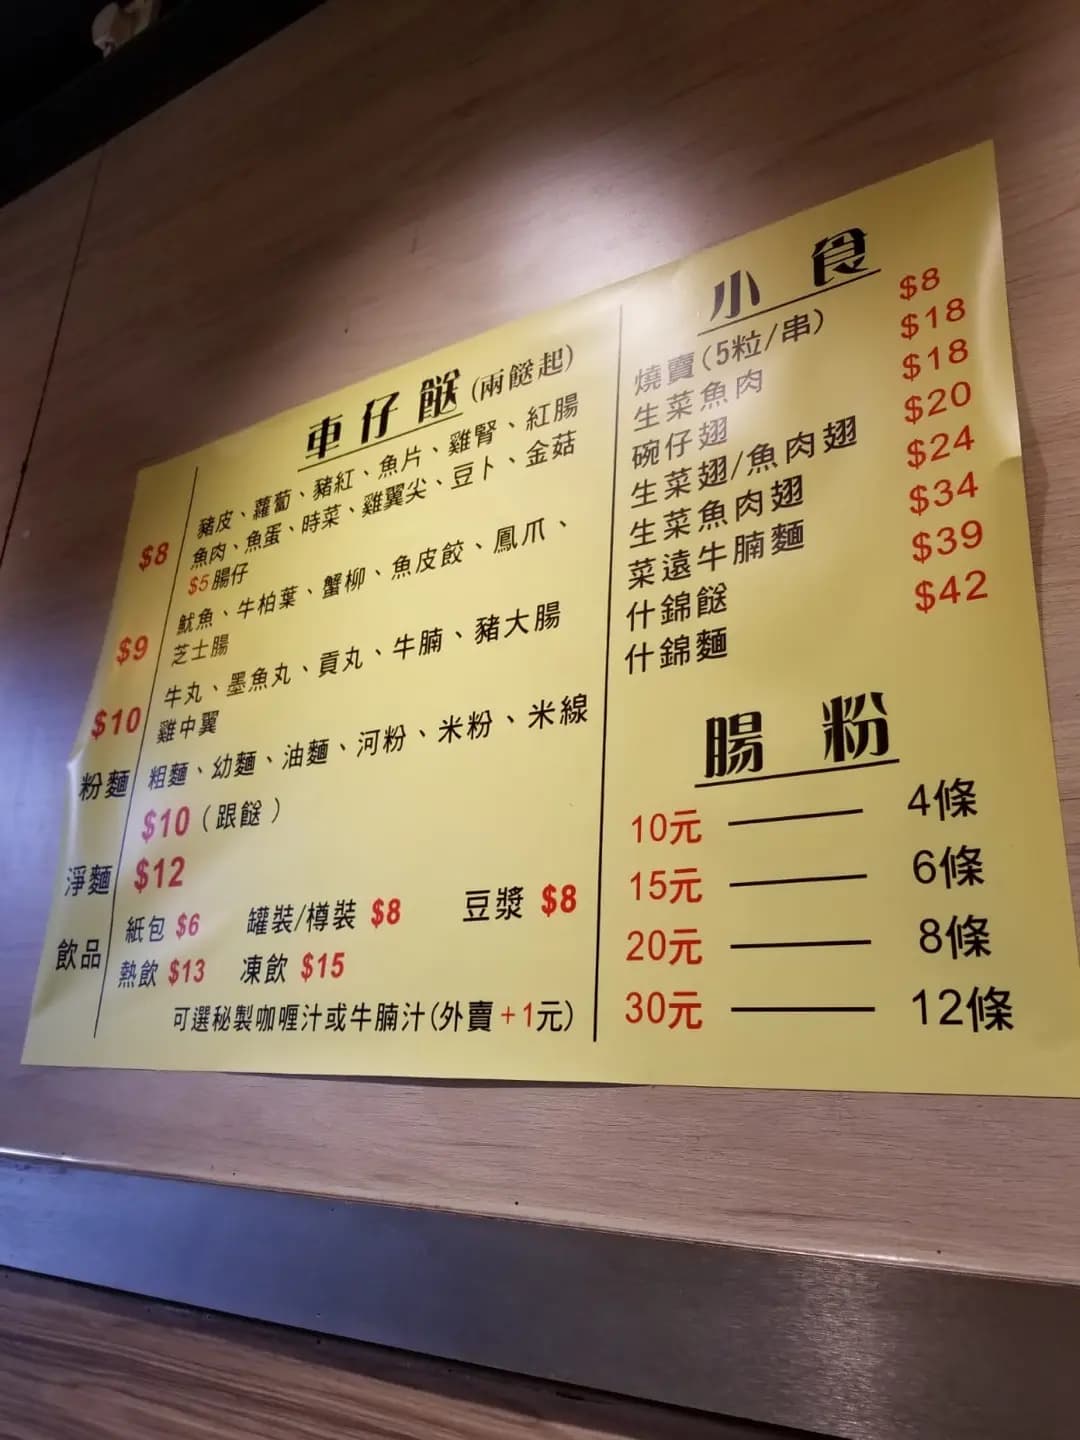 車仔餸(兩餸起)
$8
豬皮、蘿蔔、豬紅、魚片、雞腎、紅腸
魚肉、魚蛋、時菜、雞翼尖、豆卜、金菇
$5腸仔
$9
魷魚、牛柏葉、蟹柳、魚皮餃、鳳爪、
芝士腸
$10
牛丸、墨魚丸、貢丸、牛腩、豬大腸
雞中翼
粉麵
粗麵、幼麵、油麵、河粉、米粉、米線
$10(跟餸)
淨麵 $12
飲品
紙包 $6 罐裝/樽裝 $8 豆漿 $8
熱飲 $13 凍飲 $15
可選秘製咖喱汁或牛腩汁(外賣+1元)
小食
燒賣(5粒/串) $8
生菜魚肉 $18
碗仔翅 $18
生菜翅/魚肉翅 $20
生菜魚肉翅 $24
菜遠牛腩麵 $34
什錦餸 $39
什錦麵 $42
腸粉
10元 —— 4條
15元 —— 6條
20元 —— 8條
30元 —— 12條